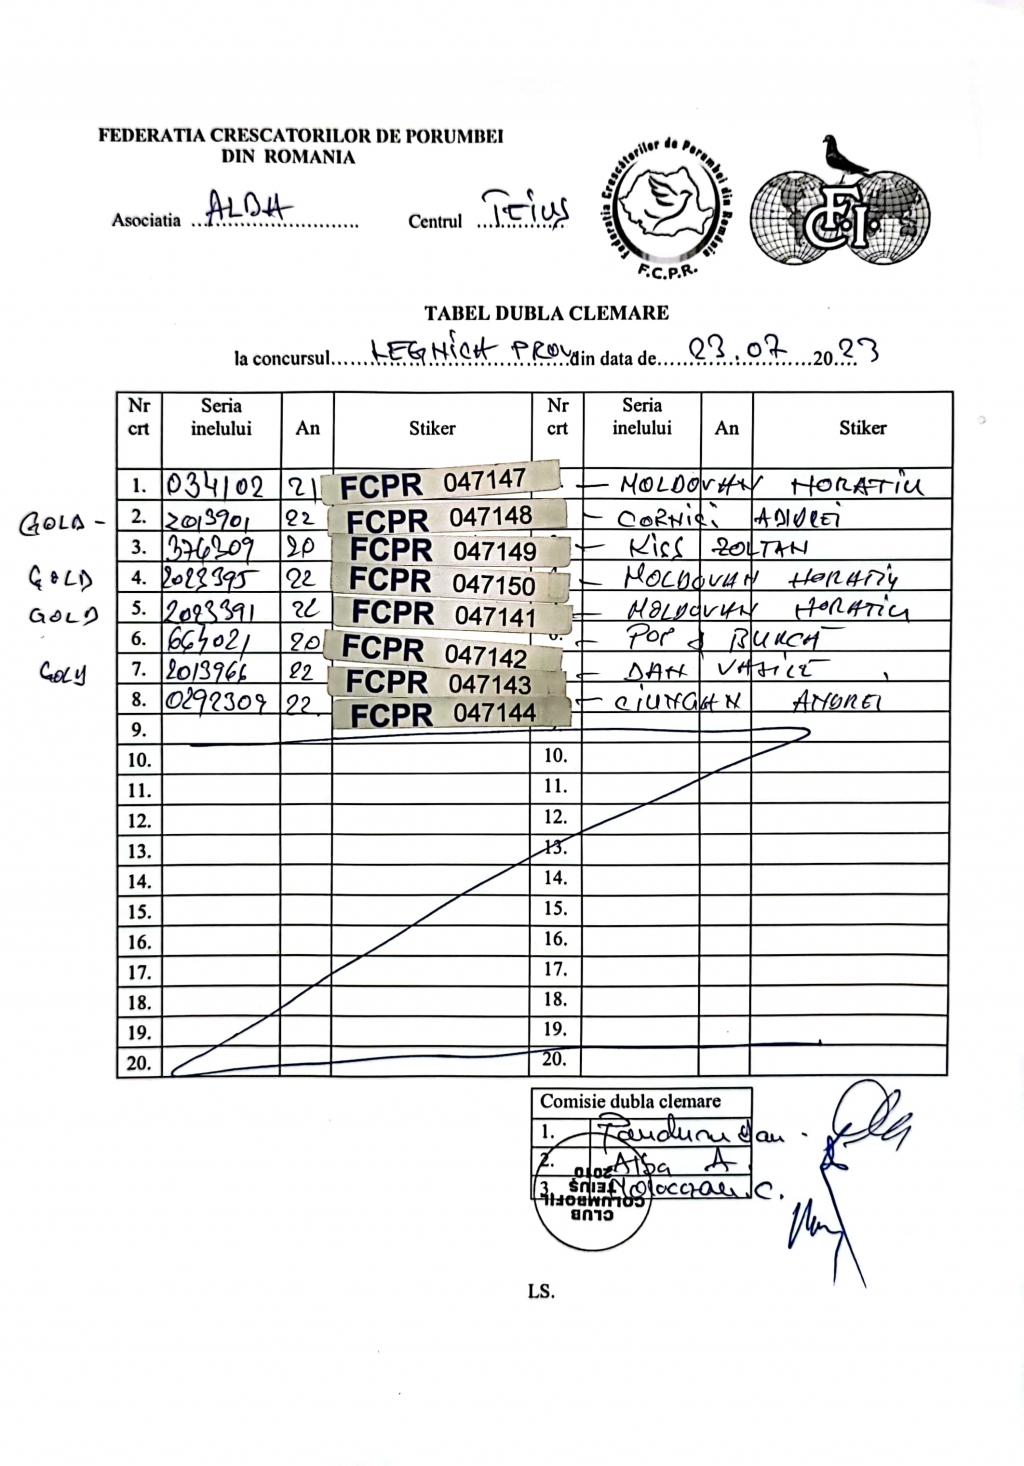 FEDERATIA CRESCATORILOR DE PORUMBEI
DIN ROMANIA
Asociatia ALBA Centrul Teius
Federatia Crescătorilor de Porumbei din România
F.C.P.R.
F.C.I.
TABEL DUBLA CLEMARE
la concursul LEGNICA PROV din data de 23.07 2023
Nr crt Seria inelului An Stiker Nr crt Seria inelului An Stiker
1. 034102 21 FCPR 047147 - MOLDOVAN HORATIU
GOLD - 2. 2013901 22 FCPR 047148 - CORNICI ANDREI
3. 376309 20 FCPR 047149 - KISS ZOLTAN
GOLD 4. 2023395 22 FCPR 047150 - MOLDOVAN HORATIU
GOLD 5. 2023391 22 FCPR 047141 - MOLDOVAN HORATIU
6. 664021 20 FCPR 047142 - POP & BUNCA
GOLD 7. 2013966 22 FCPR 047143 - DAN VASILE
8. 0292309 22 FCPR 047144 - CIUNGAN ANDREI
9.
10. 10.
11. 11.
12. 12.
13. 13.
14. 14.
15. 15.
16. 16.
17. 17.
18. 18.
19. 19.
20. 20.
Comisie dubla clemare
1. Panduru Dan
2. Alba A.
3. C.
CLUB
COLUMBOFIL
TEIUȘ
2010
LS.